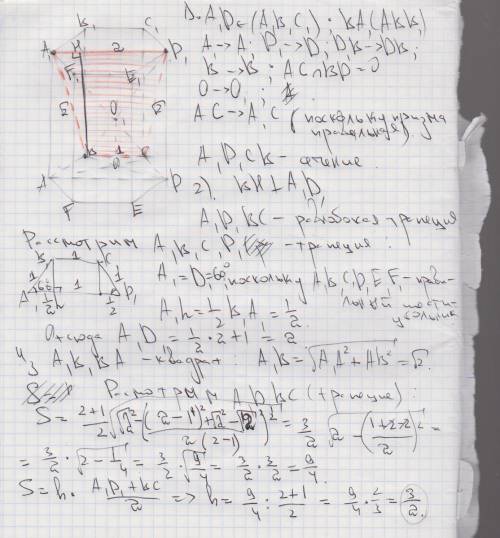 A₁D₁ ∈ (A₁B₁C₁) ; BA₁(ABB₁)
A → A₁ D₁ → D; DB → DB₁
B → B₁ ; AC ∩ BD = O
O → O₁ ;
AC → A₁C₁ (поскольку призма
правильная)
A₁D₁CB – сечение.
2). BH ⊥ A₁D₁
A₁D₁BC – равнобокая трапеция
Рассмотрим A₁B₁C₁D₁ – трапеция :
A₁ = D = 60° поскольку A₁B₁C₁D₁E₁F₁ – правильный шестиугольник
A₁h = 1/2 B₁A₁ = 1/2
Отсюда A₁D₁ = 1/2 · 2 + 1 = 2
Из A₁B₁BA – квадрат : A₁B = √(A₁A² + AB²) = √2.
Расмотрим A₁D₁BC (трапеция) :
S = (2+1)/2 √(√2² − ((2−1)² + √2² − √2²)/(2(2−1)))² = 3/2 √(2 − ((1+2−2)/2)²) =
= 3/2 · √(2 − 1/4) = 3/2 · √(9/4) = 3/2 · 3/2 = 9/4
S = h · (A₁D₁ + BC)/2 => h = 9/4 : (2+1)/2 = 9/4 · 2/3 = 3/2.